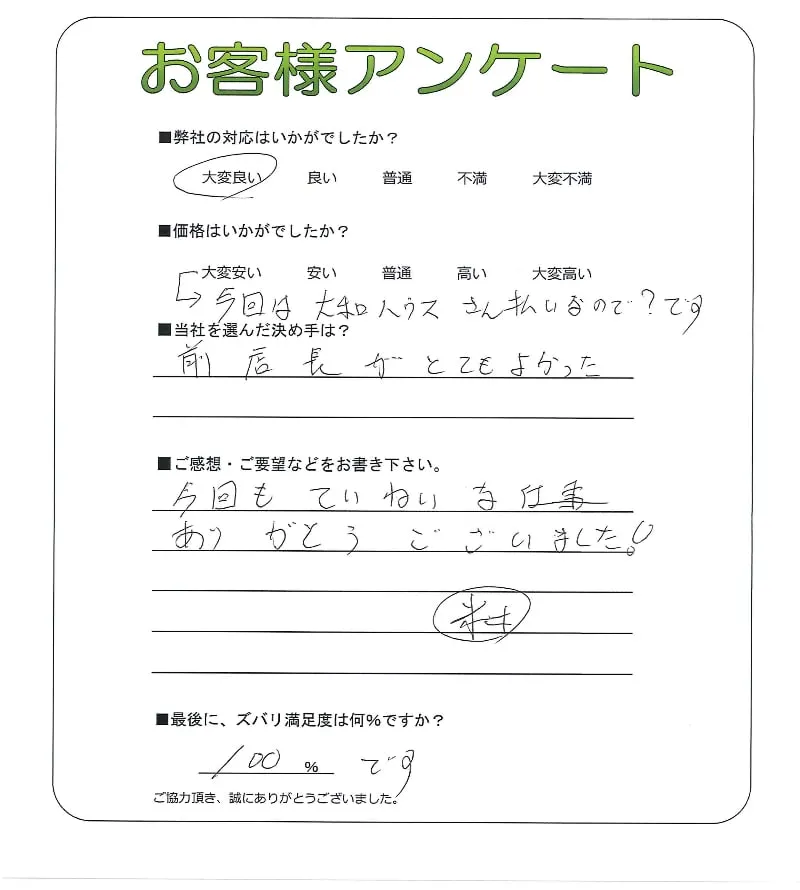 お客様アンケート
■弊社の対応はいかがでしたか?
大変良い 良い 普通 不満 大変不満
■価格はいかがでしたか?
大変安い 安い 普通 高い 大変高い
今回は 大和ハウス さん払いなので?です
■当社を選んだ決め手は?
前店長がとてもよかった
■ご感想・ご要望などをお書き下さい。
今回もていねいな仕事
ありがとうございました!
■最後に、ズバリ満足度は何%ですか?
100 % です
ご協力頂き、誠にありがとうございました。